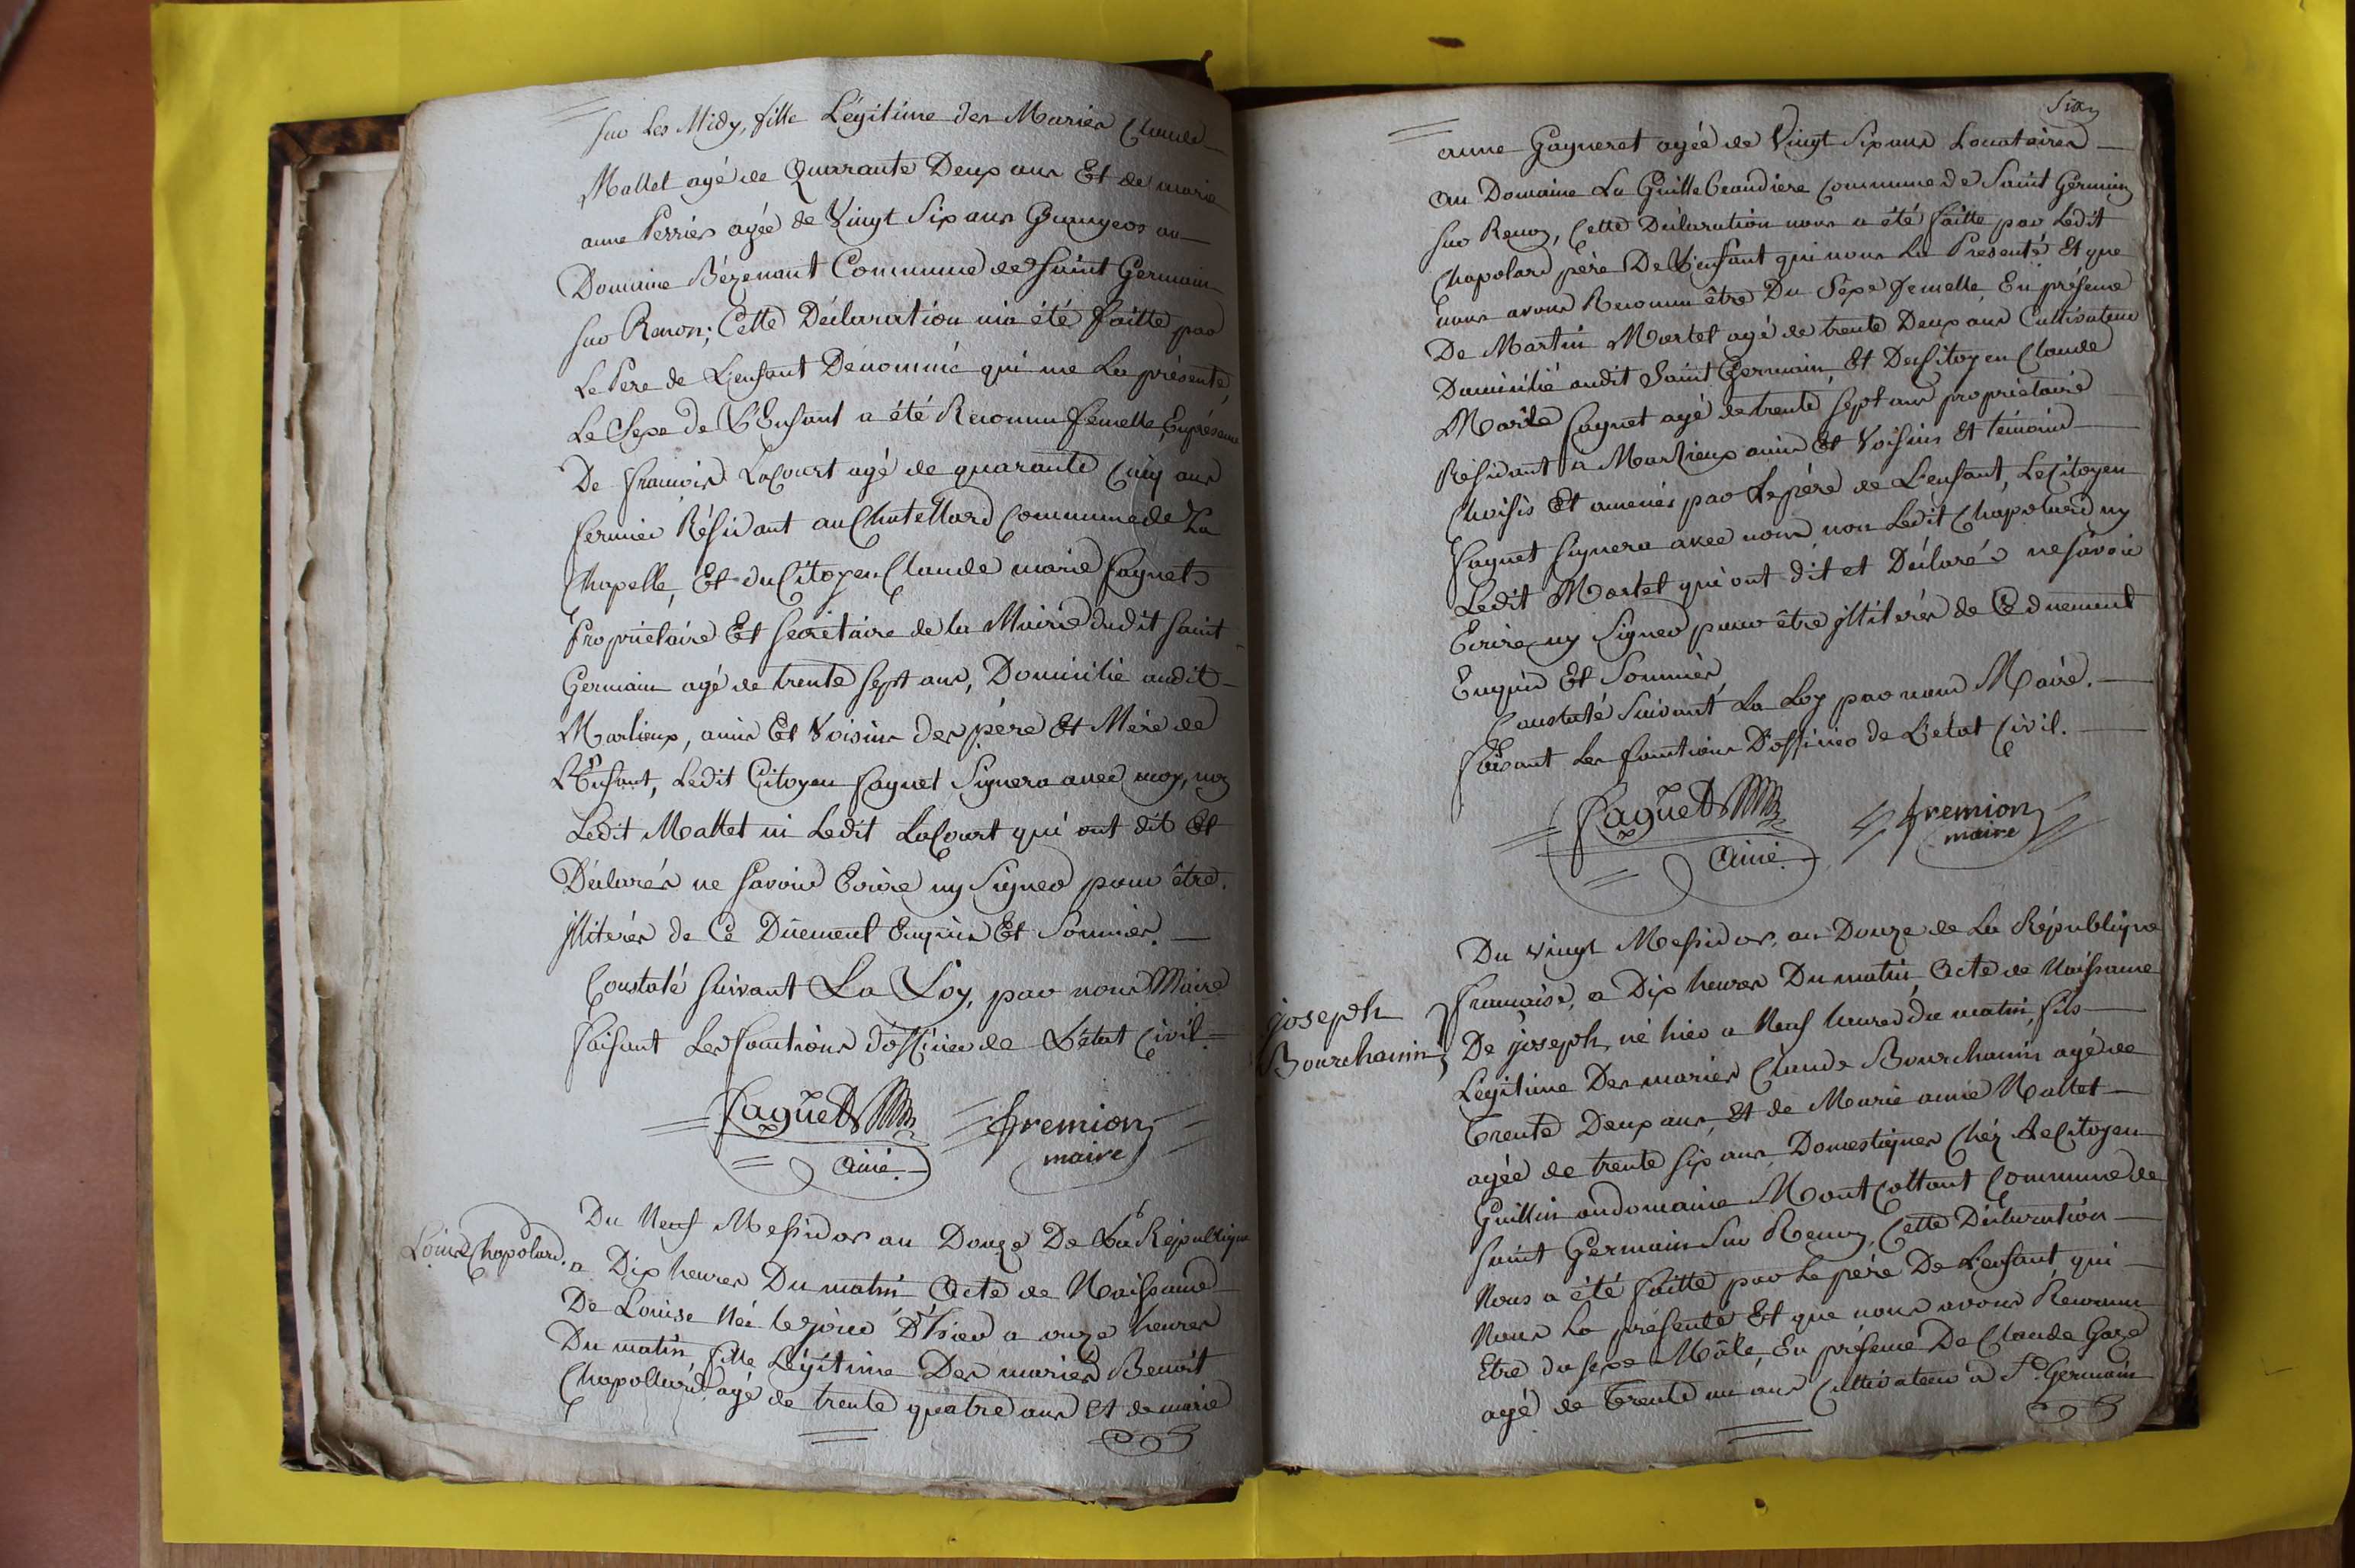 sur Les Midy, fille Légitime des Mariés Claude
Mallet agé de Quarante Deux ans Et de marie
anne Perrier agée de Vingt Six ans Grangeos au
Domaine Bézenant Commune de Saint Germain
sur Renon; Cette Déclaration m'a été faitte par
Le Pere de L'enfant Dénommé qui me La présenté,
Le Sexe de L'Enfant a été Reconnu femelle, En présence
De francois LaCourt agé de quarante Cinq ans
fermier Résidant au Chatellard Commune de La
Chapelle, Et du Citoyen Claude marie Saynet
Proprietaire Et Secrétaire de la Mairie dudit Saint
Germain agé de trente Sept ans, Domicilié audit
Marlieux, amis Et Voisins des père Et Mére de
L'Enfant, Ledit Citoyen Saynet Signera avec moy, non
Ledit Mallet ni Ledit LaCourt qui ont dit Et
Déclarés ne Savoir Ecrire ny Signer pour être
illiterés de Ce Duement Enquis Et Sommés.
Constaté Suivant La Loy, par nous Maire
faisant Les fonctions d'officier de L'état Civil.
Saguet Fremion
Ainé maire
Louise Chapolard.
Du Neuf Messidor an Douze De La République
a Dix heures Du matin Acte de Naissance
De Louise Née le jour D'hier a onze heures
Du matin fille Légitime Des mariés Benoit
Chapollard agé de trente quatre ans Et de marie
Six
anne Gayneret agée de Vingt Six ans Locataires
au Domaine La Guillebeaudiere Commune de Saint Germain
sur Renon, Cette Déclaration nous a été faitte par Ledit
Chapolard père De L'enfant qui nous La Presenté Et que
nous avons Reconnu être Du Sexe femelle, En présence
De Martin Martel agé de trente Deux ans Cultivateur
Domicilié audit Saint Germain, Et Du Citoyen Claude
Marie Saynet agé de trente Sept ans proprietaire
Résidant a Marlieux amis Et Voisins Et témoins
Choisis Et amenés par Le père de L'enfant, Le Citoyen
Saynet Signera avec nous non Ledit Chapolard ny
Ledit Martel qui ont dit et Déclarés ne Savoir
Ecrire ny Signer pour être illiterés de Ce duement
Enquis Et Sommés,
Constaté Suivant La Loy par nous Maire.
faisant Les fonctions D'officier de L'état Civil.
Saguet Fremion
Ainé. maire
joseph
Bourchanin
Du vingt Messidor, an Douze de La République
francaise, a Dix heures Du matin, Acte de Naissance
De joseph, né hier a Neuf heures du matin, fils
Légitime Des mariés Claude Bourchanin agé de
Trente Deux ans, Et de Marie amie Mallet
agée de trente Six ans, Domestiques Chéz Le Citoyen
Guillin au domaine Mont Collant Commune de
Saint Germain Sur Renon, Cette Déclaration
Nous a été faitte par Le père De L'enfant, qui
Nous La présenté Et que nous avons Reconnu
Etre du Sexe Mâle, En présence De Claude Gaze
agé de Trente un ans Cultivateur a St. Germain